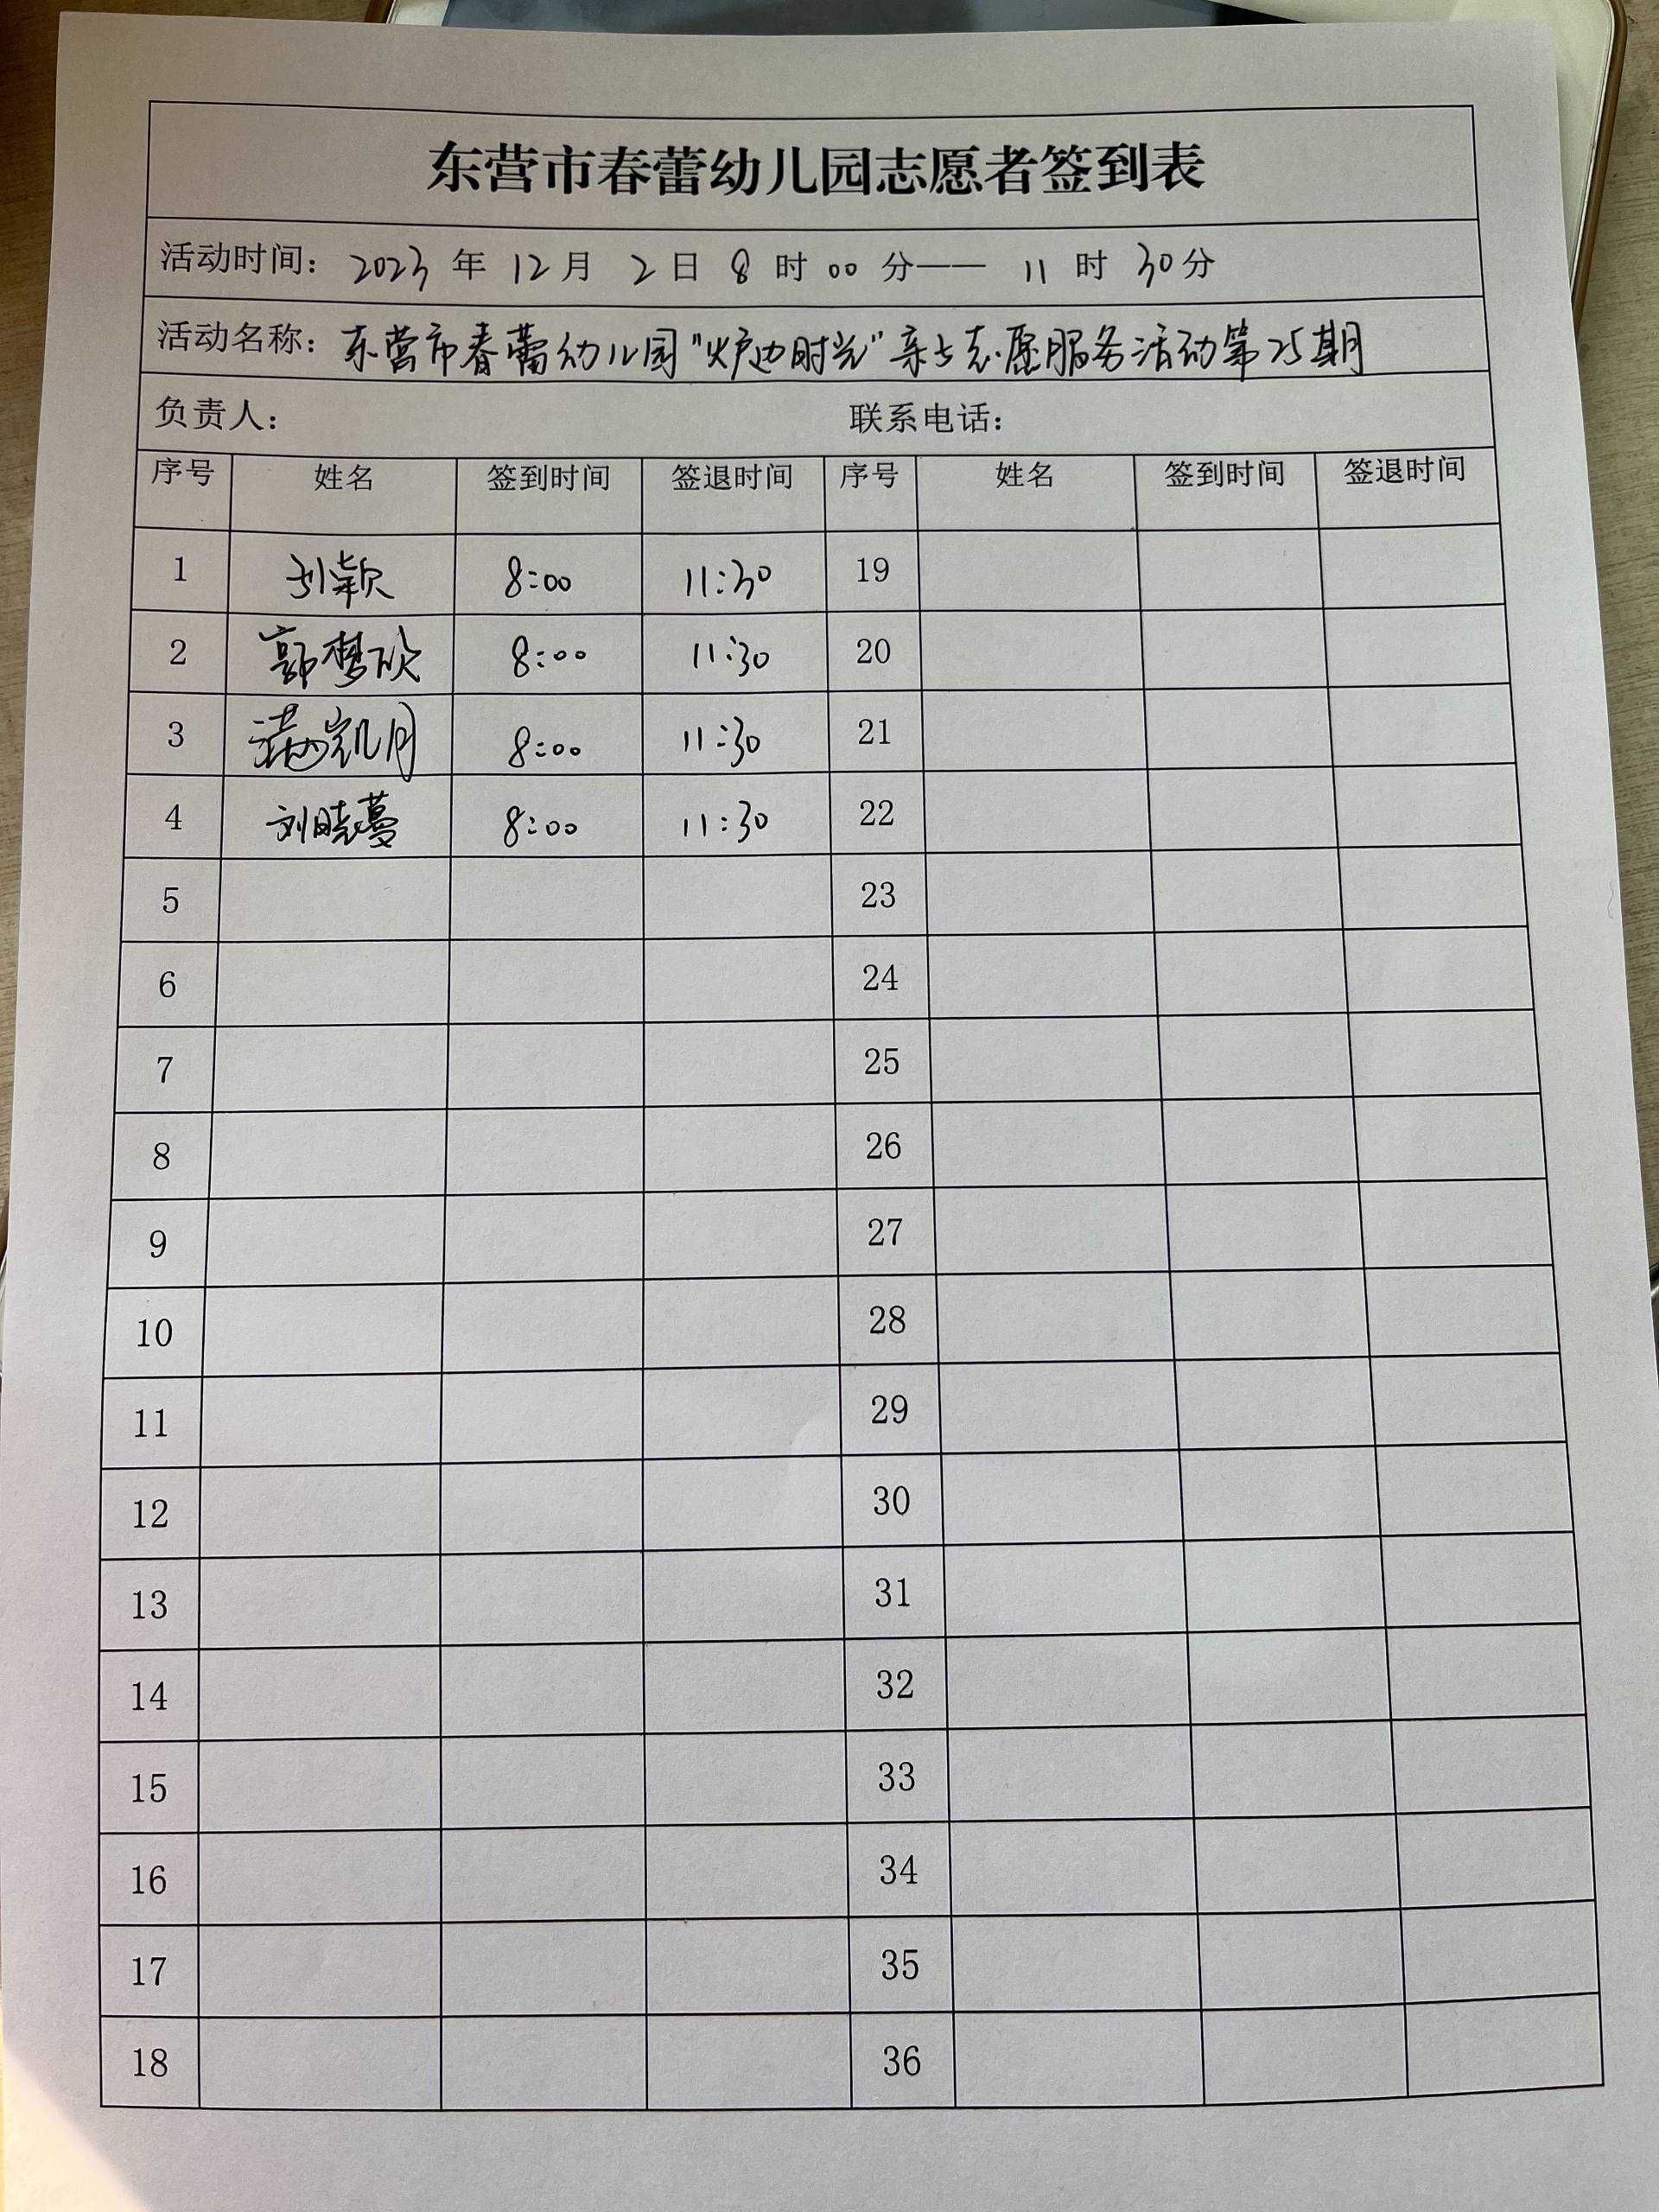 东营市春蕾幼儿园志愿者签到表
活动时间： 2023 年 12 月 2 日 8 时 00 分—— 11 时 30 分
活动名称：东营市春蕾幼儿园"炉边时光"亲与志愿服务活动第25期
负责人： 联系电话：
序号 姓名 签到时间 签退时间 序号 姓名 签到时间 签退时间
1 刘颖 8:00 11:30 19
2 郭梦欣 8:00 11:30 20
3 满凯月 8:00 11:30 21
4 刘晓蔓 8:00 11:30 22
5 23
6 24
7 25
8 26
9 27
10 28
11 29
12 30
13 31
14 32
15 33
16 34
17 35
18 36